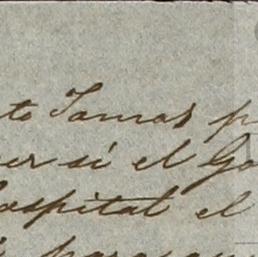 to Tamas p
er si el Go
hospital el